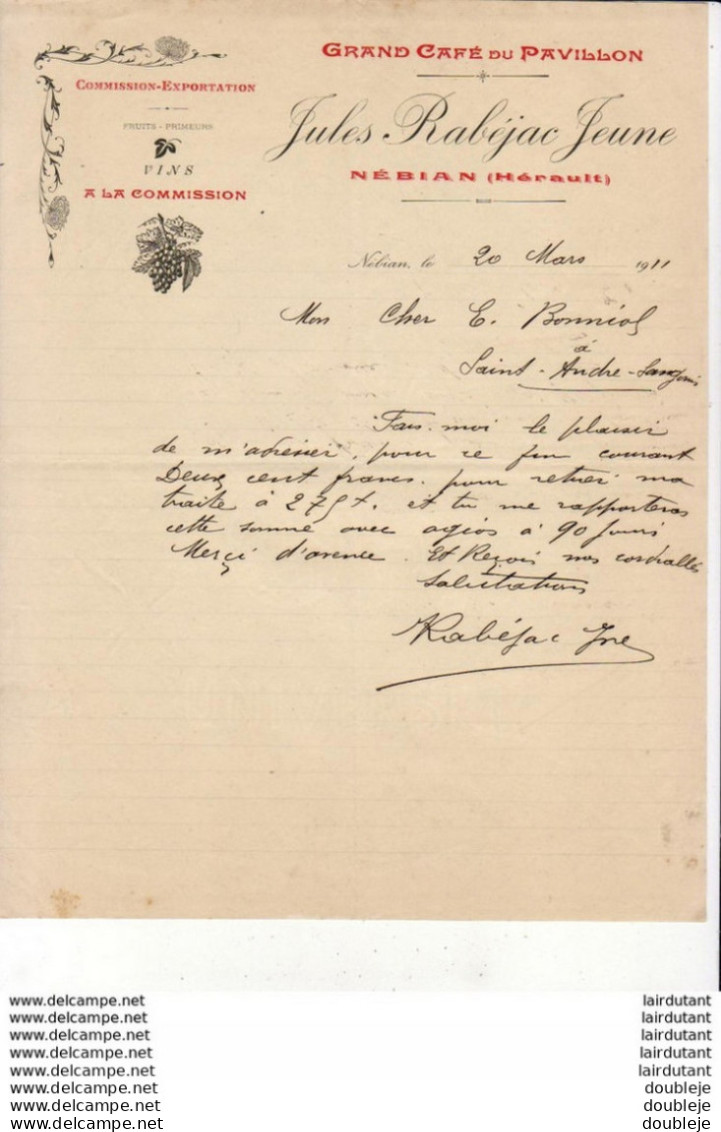 GRAND CAFÉ DU PAVILLON
COMMISSION-EXPORTATION
FRUITS - PRIMEURS
VINS
A LA COMMISSION
Jules Rabéjac Jeune
NÉBIAN (Hérault)
Nébian, le 20 Mars 1911
Mon Cher E. Bonniol
à
Saint-André-Sangonis
Fais-moi le plaisir
de m'adresser, pour ce fin courant
Deux cent francs, pour retirer ma
traite à 275 f. et tu me rapporteras
cette somme avec agios à 90 jours
Merçi d'avence. Et Reçois nos cordialles
Salutations
Rabéjac Jne
www.delcampe.net
www.delcampe.net
www.delcampe.net
www.delcampe.net
www.delcampe.net
www.delcampe.net
www.delcampe.net
www.delcampe.net
lairdutant
lairdutant
lairdutant
lairdutant
lairdutant
doubleje
doubleje
doubleje